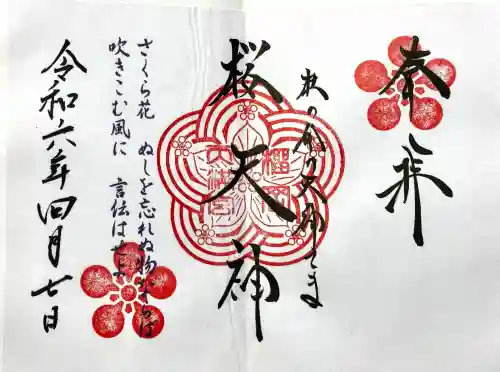 奉拝
杜の都の天神さま
桜天神
榴岡
天満宮
さくら花　ぬしを忘れぬ物ならば
吹きこむ風に　言伝はせよ
令和六年四月七日